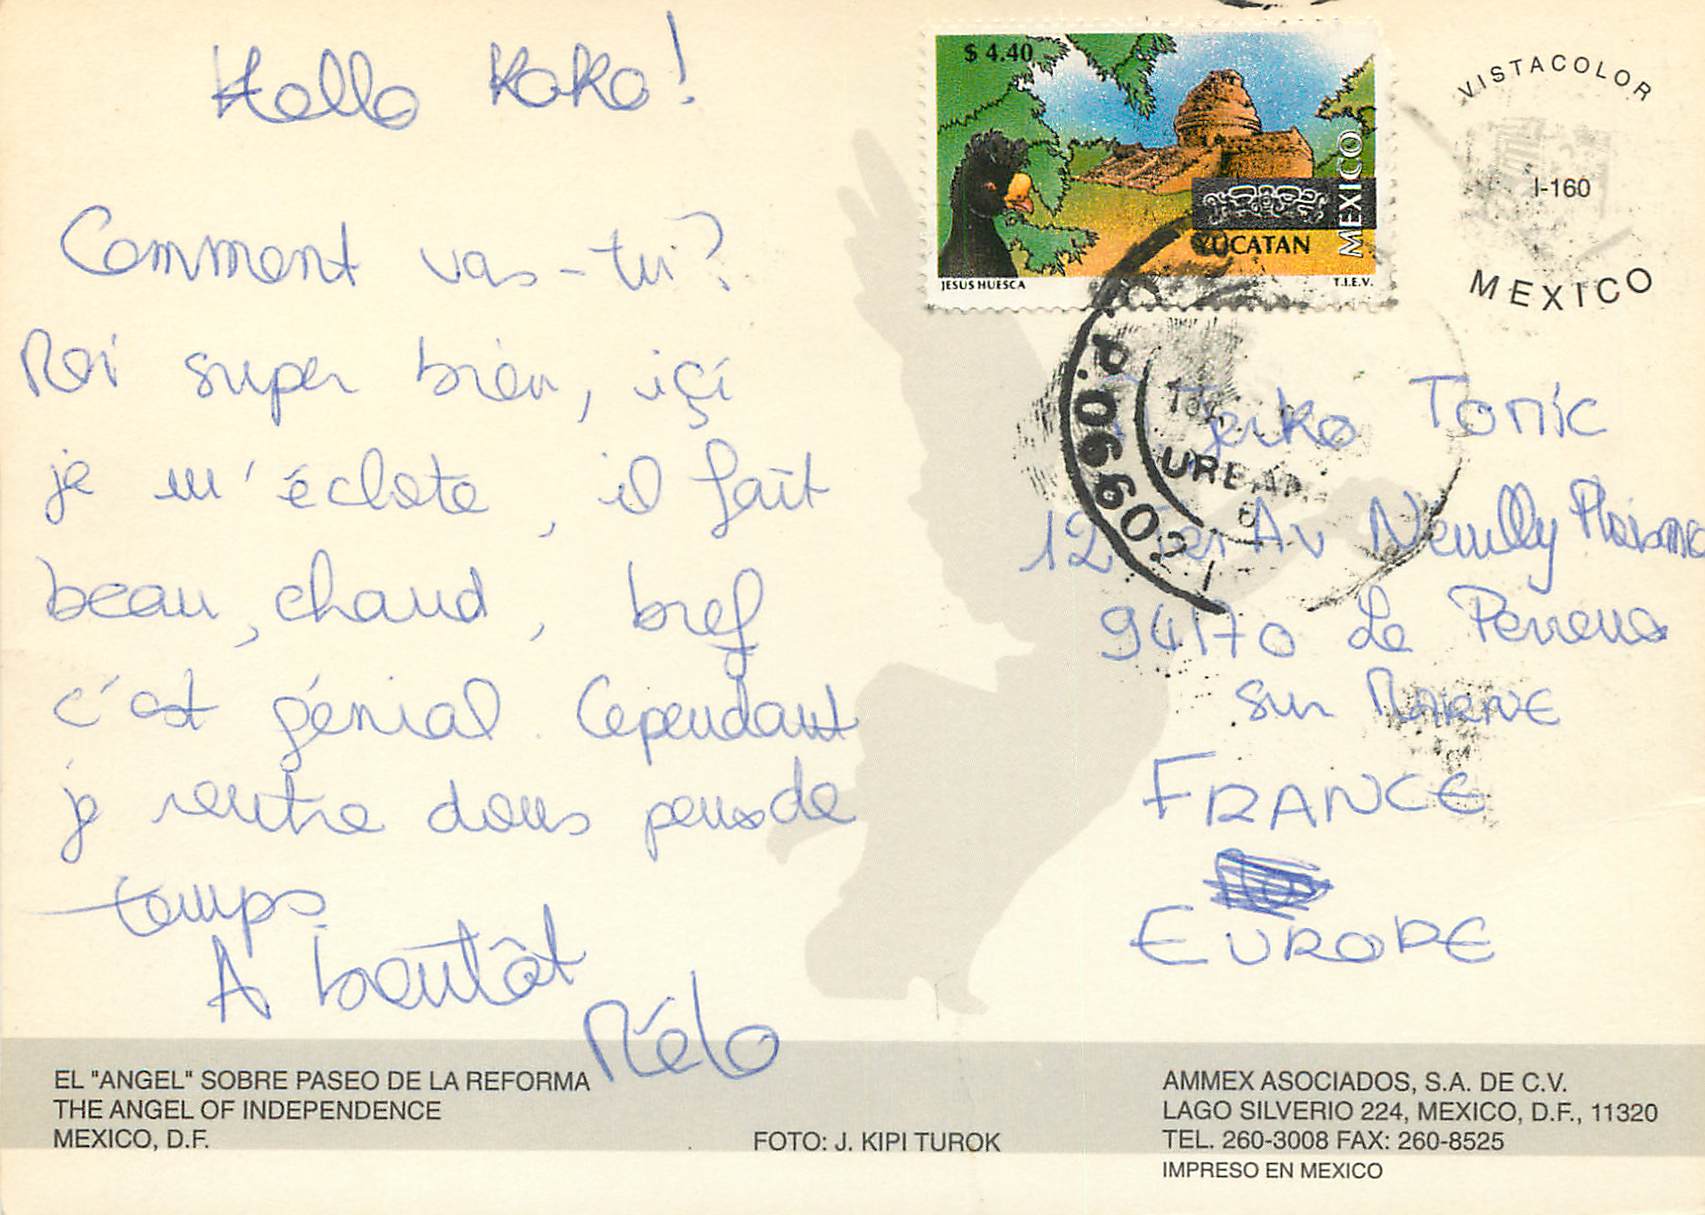 Hello KoKo!
Comment vas-tu?
Moi super bien, içi
je m'éclate, il fait
beau, chaud, bref
c'est génial. Cependant
je rentre dans peu de
temps.
A bientôt
Mélo
$ 4.40
MEXICO
YUCATAN
JESUS HUESCA
T.I.E.V.
VISTACOLOR
I-160
MEXICO
URBANA
Tonic
12 Ter Av Neuilly Plaisance
94170 Le Perreux
sur MARNE
FRANCE
EUROPE
EL "ANGEL" SOBRE PASEO DE LA REFORMA
THE ANGEL OF INDEPENDENCE
MEXICO, D.F.
FOTO: J. KIPI TUROK
AMMEX ASOCIADOS, S.A. DE C.V.
LAGO SILVERIO 224, MEXICO, D.F., 11320
TEL. 260-3008 FAX: 260-8525
IMPRESO EN MEXICO